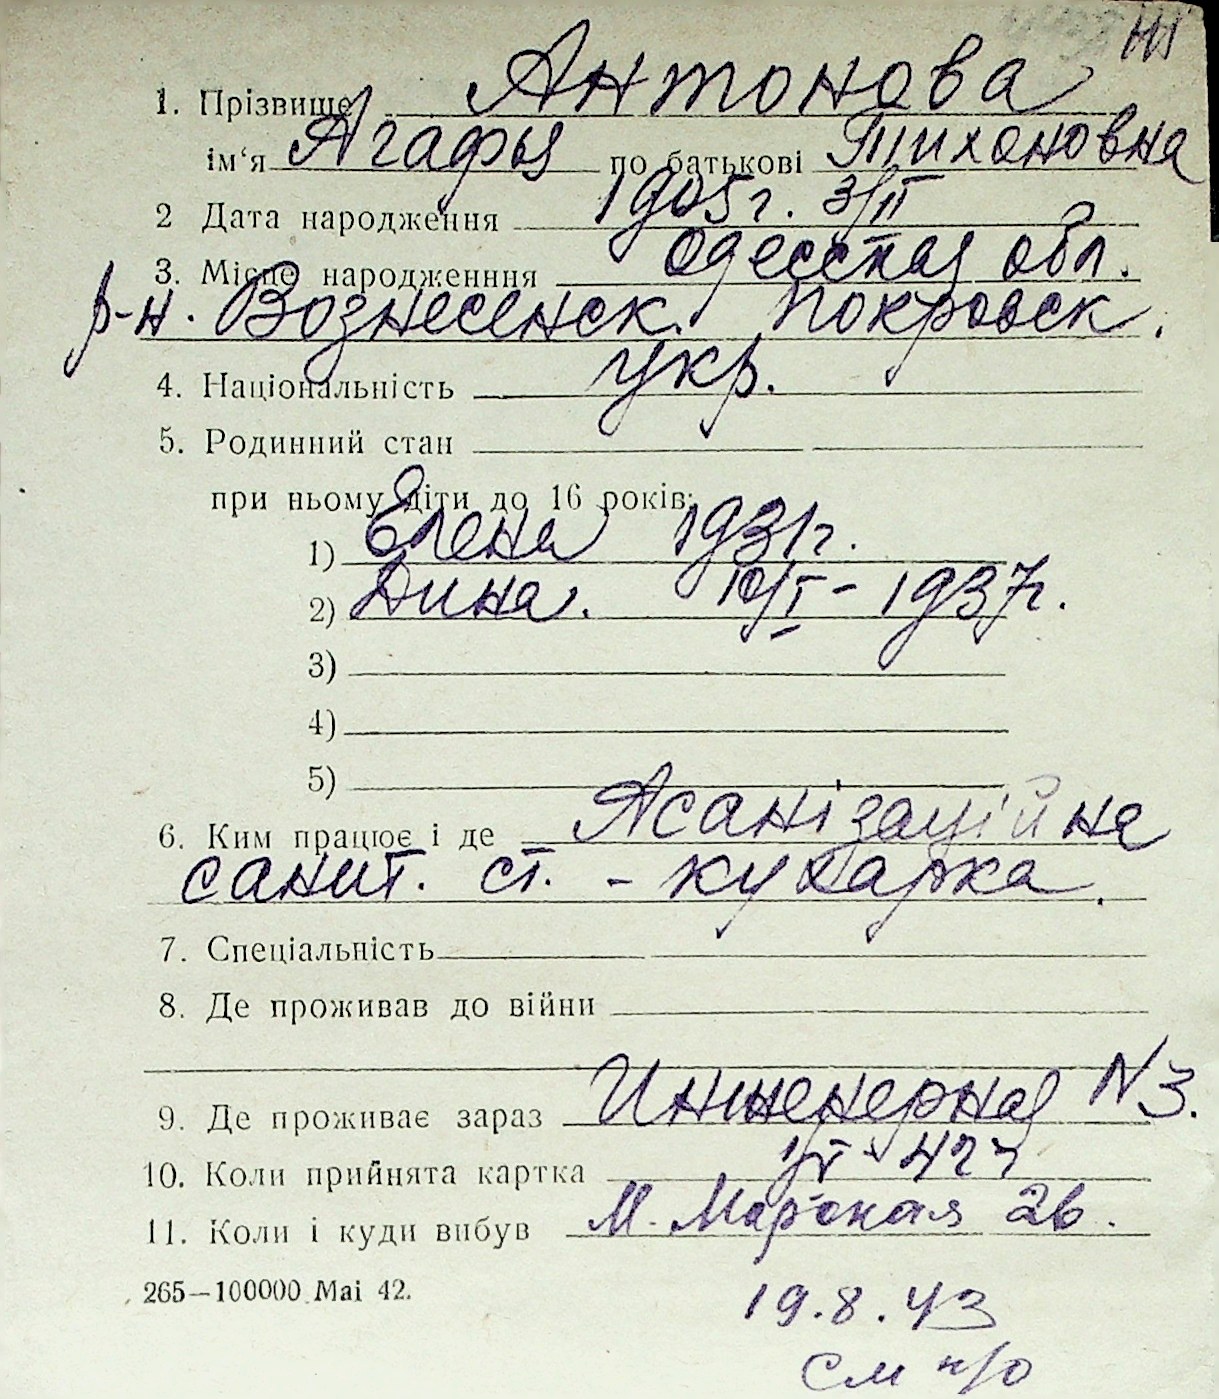 1. Прізвище Антонова
ім‘я Агафья по батькові Тихоновна
2 Дата народження 1905 г. 3/II
3. Місце народженння Одесская обл.
р-н. Вознесенск. Покровск.
4. Національність укр.
5. Родинний стан
при ньому діти до 16 років:
1) Елена 1931 г.
2) Дина. 10/I - 1937 г.
3)
4)
5)
6. Ким працює і де Асанізаційна
санит. ст. - кухарка.
7. Спеціальність
8. Де проживав до війни
9. Де проживає зараз Инженерная N 3.
10. Коли прийнята картка 42 г
11. Коли і куди вибув М. Морская 26.
265—100000 Mai 42.
19.8.43
См н/о